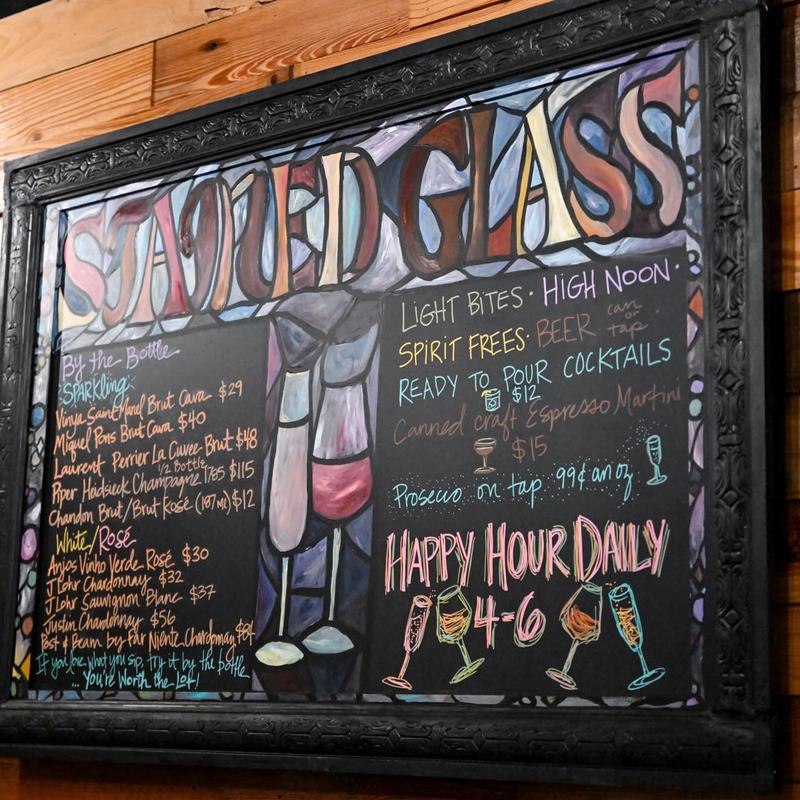 STAINED GLASS
By the Bottle
SPARKling
Vinya Saint Manel Brut Cava $29
Miquel Pons Brut Cava $40
Laurent Perrier La Cuvee Brut $48
1/2 Bottle
Piper Heidsieck Champagne 1785 $115
Chandon Brut/Brut Rosé (187ml) $12
White/Rosé
Anjos Vinho Verde Rosé $30
J Lohr Chardonnay $32
J Lohr Sauvignon Blanc $37
Justin Chardonnay $56
Post & Beam by Far Niente Chardonnay $84
If you love what you sip, try it by the bottle
... You're Worth the Lot!
LIGHT BITES · HIGH NOON ·
SPIRIT FREES · BEER can or tap
READY TO POUR COCKTAILS
$12
Canned craft Espresso Martini
$15
Prosecco on tap 99¢ an oz
HAPPY HOUR DAILY
4-6